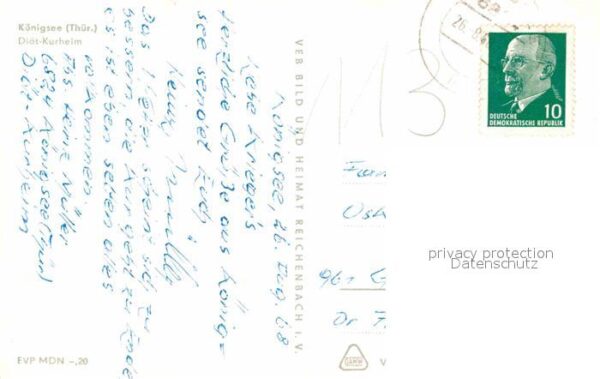 Königsee (Thür.)
Diät-Kurheim
Königsee, 26. Aug. 68
Liebe Krieger's
Herzliche Grüße aus König-
see sendet Euch
Das Wetter scheint sich zu
bessern, die Kur geht zu Ende
es ist eben selten alles
vollkommen.
6824 Königsee (Thür)
Diät-Kurheim
VEB BILD UND HEIMAT REICHENBACH i. V.
EVP MDN -,20
26.
DEUTSCHE
DEMOKRATISCHE REPUBLIK
10
Fam
Dr. F
privacy protection
Datenschutz
V